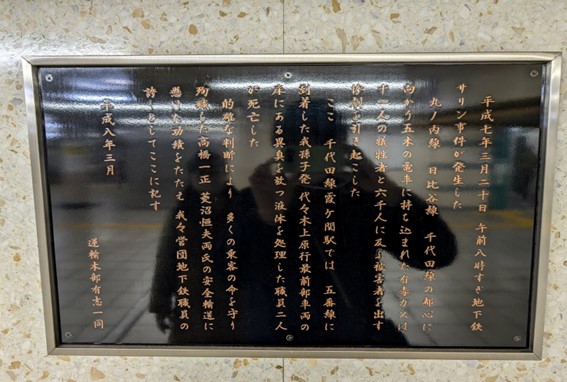 平成七年三月二十日 午前八時すぎ地下鉄
サリン事件が発生した
丸ノ内線 日比谷線 千代田線の都心に
向かう五本の電車に持ち込まれた有毒ガスは
十一人の犠牲者と六千人に及ぶ被害者を出す
惨劇を引き起こした
ここ 千代田線霞ケ関駅では 五番線に
到着した我孫子発代々木上原行最前部車両の
床にある異臭を放つ液体を処理した職員二人
が死亡した
的確な判断により 多くの乗客の命を守り
殉職した高橋一正 菱沼恒夫両氏の安全輸送に
懸けた功績をたたえ 我々営団地下鉄職員の
誇りとしてここに記す
平成八年三月
運輸本部有志一同